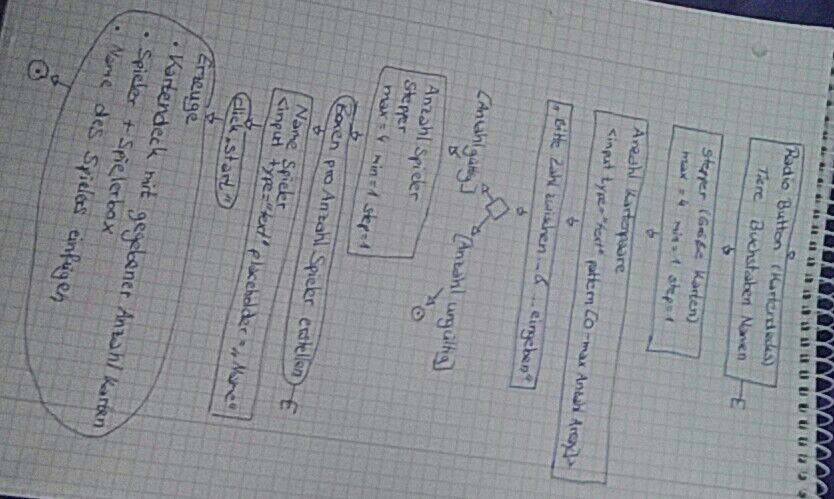 Radio Button (Kartendecks)
Tiere Buchstaben Namen
E
Stepper (Größe Karten)
max = 4 min = 1 step = 1
Anzahl Kartenpaare
<input type="text" pattern [0-max Anzahl Array]>
„Bitte Zahl zwischen ... & ... eingeben"
[Anzahl gültig]
[Anzahl ungültig]
Anzahl Spieler
Stepper
max = 4 min = 1 step = 1
Boxen pro Anzahl Spieler erstellen
E
Name Spieler
<input type="text" placeholder = „Name"
click „start"
Erzeuge
• Kartendeck mit gegebener Anzahl Karten
• Spieler + Spielerbox
• Name des Spielers einfügen